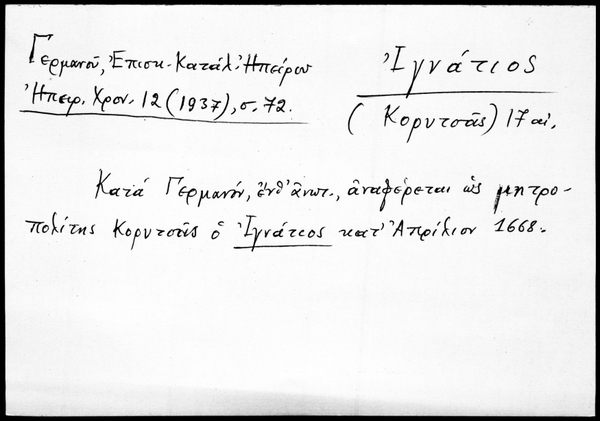 Γερμανοῦ, Ἐπισκ. Κατάλ. Ἠπείρου
Ἠπειρ. Χρον. 12 (1937), σ. 72.
Ἰγνάτιος
(Κορυτσᾶς) 17 αἰ.
Κατά Γερμανόν, ἐνθ' ἄνωτ., ἀναφέρεται ὡς μητρο-
πολίτης Κορυτσᾶς ὁ Ἰγνάτιος κατ' Ἀπρίλιον 1668.